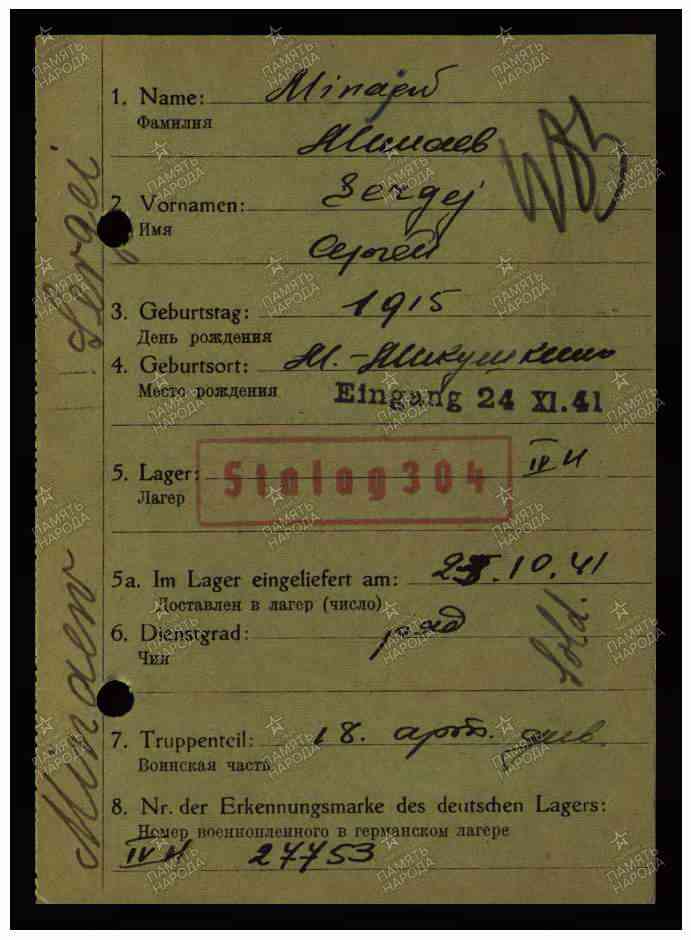 1. Name: Minajew
Фамилия
Минаев
2. Vornamen: Sergej
Имя
Сергей
3. Geburtstag: 1915
День рождения
4. Geburtsort: М.-Микушкино
Место рождения
Eingang 24 XI.41
5. Lager: Stalag 304 IV H
Лагер
5a. Im Lager eingeliefert am: 10.41
Доставлен в лагер (число)
6. Dienstgrad: ряд
Чин
Sold.
7. Truppenteil: 18. арт. див.
Воинская часть
8. Nr. der Erkennungsmarke des deutschen Lagers:
Номер военнопленного в германском лагере
IV H 27753
Minaew Sergei
ПАМЯТЬ
НАРОДА